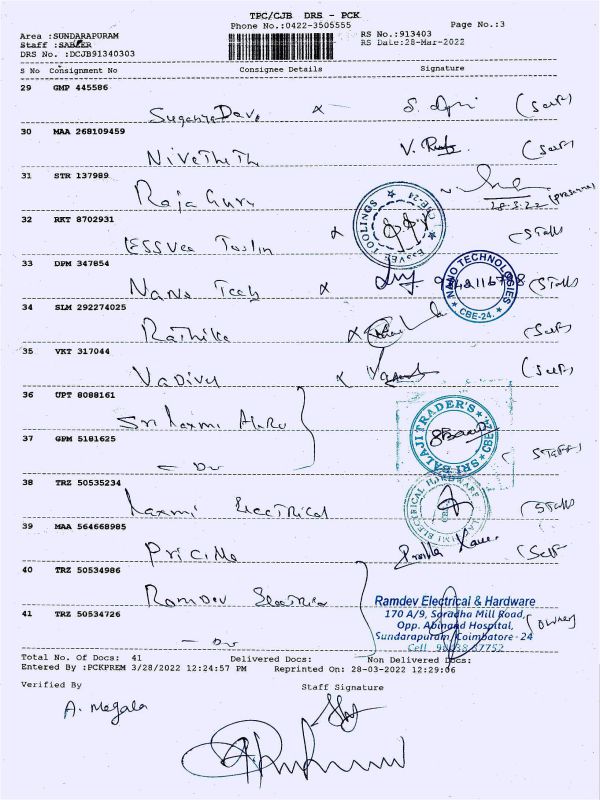 TPC/CJB DRS - PCK
Phone No.:0422-3505555 Page No.:3
Area :SUNDARAPURAM RS No.:913403
Staff :SABEER RS Date:28-Mar-2022
DRS No. :DCJB91340303
S No Consignment No Consignee Details Signature
29 GMP 445586
(Self)
30 MAA 268109459
Nivethith (Self)
31 STR 137989
Raja Guru
28.3.22
32 RKT 8702931
ESSVEE TOOLINGS CBE-24
Essvee Toolin
33 DPM 347854
NANO TECHNOLOGIES CBE-24.
Nano Tech
34 SLM 292274025
Rathika (Self)
35 VKT 317044
Vadivu (Self)
36 UPT 8088161
Sri Laxmi
SRI BALAJI TRADER'S CBE
37 GPM 5181625
- Do Staff
38 TRZ 50535234
Laxmi Electrical
LAXMI ELECTRICAL HARDWARE
39 MAA 564668985
(Self
40 TRZ 50534986
Ramdev Electrical
Ramdev Electrical & Hardware
170 A/9, Saradha Mill Road,
41 TRZ 50534726
Opp. Abinand Hospital, (Owner)
- Do Sundarapuram, Coimbatore - 24
Cell 98438 37752
Total No. Of Docs: 41 Delivered Docs: Non Delivered Docs:
Entered By :PCKPREM 3/28/2022 12:24:57 PM Reprinted On: 28-03-2022 12:29:06
Verified By Staff Signature
A. Megala